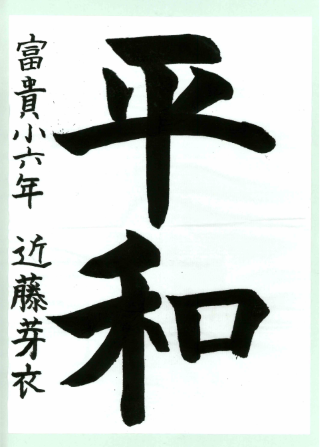 平和
富貴小六年 近藤芽衣